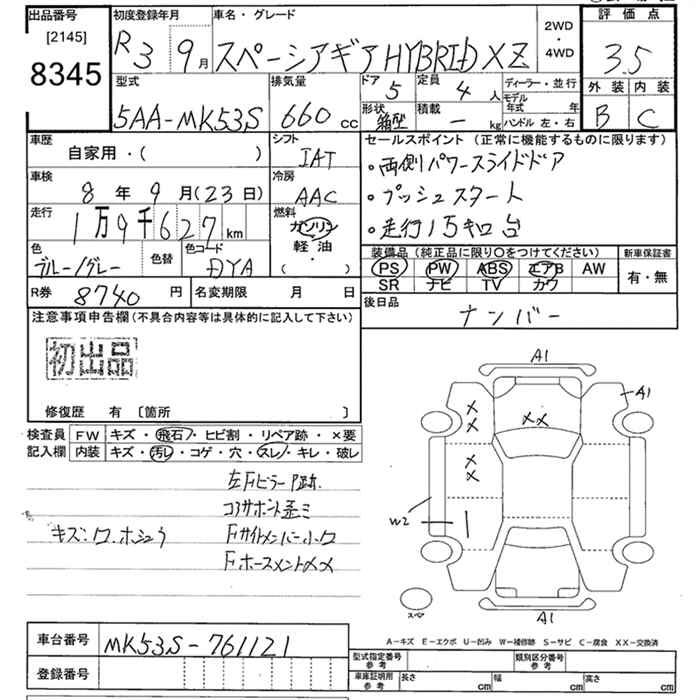 出品番号 初度登録年月 車名・グレード 2WD・4WD 評価点
[2145]
8345
R3 9月 スペーシアギアHYBRID XZ 3.5
型式 排気量 ドア 5 定員 4人 ディーラー・並行 外装 内装
5AA-MK53S 660cc 形状 箱型 積載 - kg モデル年式 年 ハンドル 左・右 B C
車歴 シフト セールスポイント (正常に機能するものに限ります)
自家用・( ) IAT ・両側パワースライドドア
車検 冷房 ・プッシュスタート
8年9月(23日) AAC ・走行1.5キロ台
走行 燃料
1万9千627km ガソリン
軽油
( )
色 色替 色コード 装備品 (純正品に限り○をつけてください) 新車保証書
ブルー/グレー DYA PS PW ABS エアB AW 有・無
SR ナビ TV カワ
R券 8740円 名変期限 月 日 後日品
ナンバー
注意事項申告欄 (不具合内容等は具体的に記入して下さい)
初出品
修復歴 有 [箇所 ]
検査員 FW キズ・飛石・ヒビ割・リペア跡・×要
記入欄 内装 キズ・汚レ・コゲ・穴・スレ・キレ・破レ
左Fピラー P跡
コアサポート歪ミ
キズ:ワ、ホシュウ Fサイドメンバー小ワ
Fホースメント××
A1
A1
××
××
××
W2
A1
スペ
A-キズ E-エクボ U-凹み W-補修跡 S-サビ C-腐食 XX-交換済
車台番号 MK53S-761121
型式指定番号 参考 類別区分番号 参考
登録番号 車庫証明用 参考 長さ cm 幅 cm 高さ cm